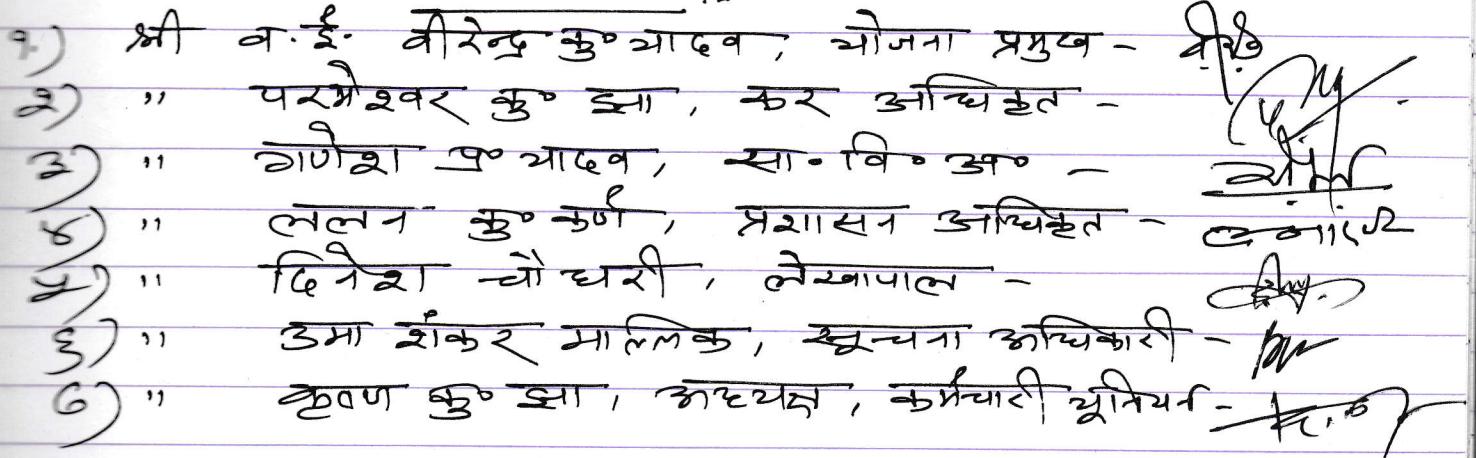 १) श्री व. ई. वीरेन्द्र कु० यादव, योजना प्रमुख -
२) " परमेश्वर कु० झा, कर अधिकृत -
३) " गणेश प्र० यादव, सा. वि० अ० -
४) " ललन कु० कर्ण, प्रशासन अधिकृत -
५) " दिनेश चौधरी, लेखापाल -
६) " उमा शंकर मल्लिक, सूचना अधिकारी -
७) " कृष्ण कु० झा, अध्यक्ष, कर्मचारी यूनियन -